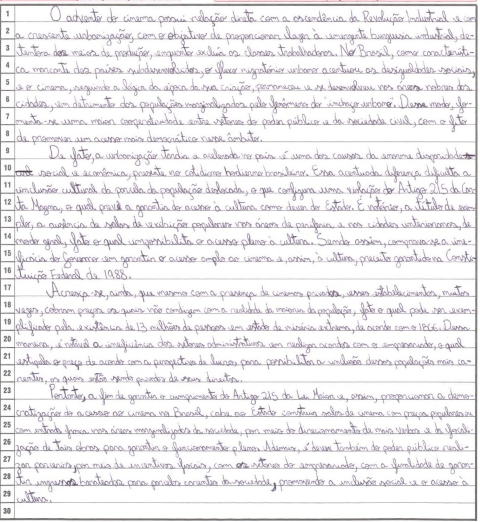 1 O advento do cinema possui relação direta com a ascendência da Revolução Industrial e com
2 a crescente urbanização, com o objetivo de proporcionar lazer à emergente burguesia industrial, de-
3 tentora dos meios de produção, enquanto excluía as classes trabalhadoras. No Brasil, como característi-
4 ca marcante dos países subdesenvolvidos, o fluxo migratório urbano acentuou as desigualdades sociais,
5 e o cinema, seguindo a lógica da época da sua criação, permaneceu e se desenvolveu nas áreas nobres das
6 cidades, em detrimento das populações marginalizadas pelo fenômeno do "inchaço urbano". Desse modo, fo-
7 menta-se uma maior corresponsabilidade entre setores do poder público e da sociedade civil, com o fito
8 de promover um acesso mais democrático nesse âmbito.
9 De fato, a urbanização tardia e acelerada no país é uma das causas da enorme disparidade
10 social e econômica, presente no cotidiano hodierno brasileiro. Essa acentuada diferença dificulta a
11 inclusão cultural da parcela da população deslocada, o que configura uma violação do Artigo 215 da Car-
12 ta Magna, o qual prevê a garantia do acesso à cultura como dever do Estado. É notório, a título de exem-
13 plo, a ausência de salas de exibição populares nas áreas de periferia e nas cidades interioranas, de
14 modo geral, fato o qual impossibilita o acesso pleno à cultura. Sendo assim, comprova-se a ine-
15 ficiência do Governo em garantir o acesso amplo ao cinema e, assim, à cultura, preceito garantido na Consti-
16 tuição Federal de 1988.
17 Acresça-se, ainda, que mesmo com a presença de cinemas privados, esses estabelecimentos, muitas
18 vezes, cobram preços os quais não condizem com a realidade da maioria da população, fato o qual pode ser exem-
19 plificado pela existência de 13 milhões de pessoas em estado de miséria extrema, de acordo com o IBGE. Dessa
20 maneira, é notável a ineficiência dos setores administrativos em realizar acordos com o empresariado, o qual
21 estipula o preço de acordo com a perspectiva de lucros, para possibilitar a inclusão dessas populações mais ca-
22 rentes, as quais estão sendo privadas de seus direitos.
23 Portanto, a fim de garantir o cumprimento do Artigo 215 da Lei Maior e, assim, proporcionar a demo-
24 cratização do acesso ao cinema no Brasil, cabe ao Estado construir salas de cinema com preços populares ou
25 com entrada franca nas áreas marginalizadas da sociedade, por meio do direcionamento de mais verbas e da fiscali-
26 zação de tais obras para garantir o funcionamento pleno. Ademais, é dever também do poder público reali-
27 zar parcerias, por meio de incentivos fiscais, com os setores do empresariado, com a finalidade de garan-
28 tir ingressos barateados para parcelas carentes da sociedade, promovendo a inclusão social e o acesso à
29 cultura.
30